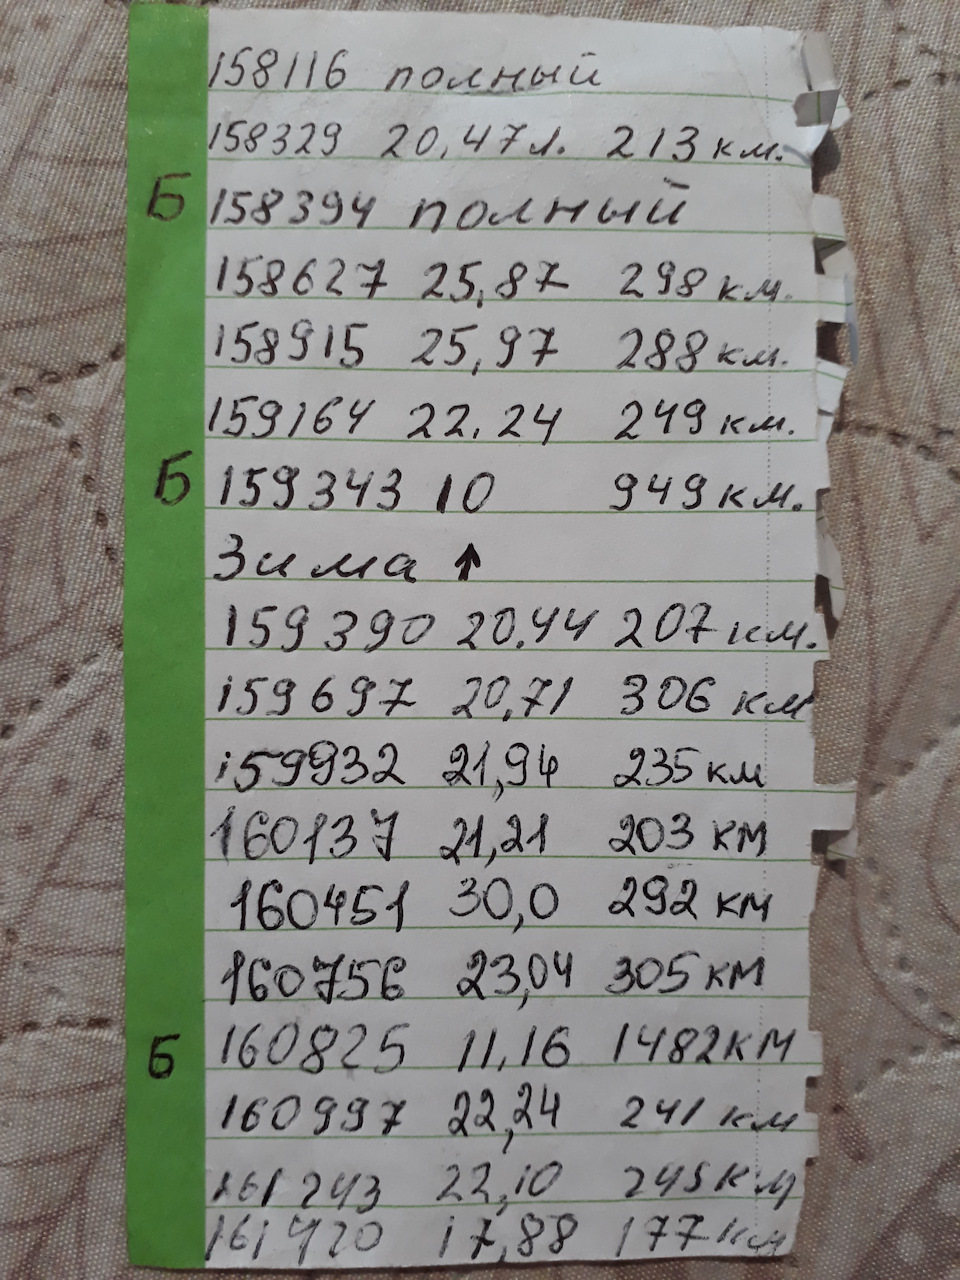 158116 полный
158329 20,47л. 213 км.
Б 158394 полный
158627 25,87 298 км.
158915 25,97 288 км.
159164 22.24 249 км.
Б 159343 10 949 км.
Зима ↑
159390 20.44 207 км.
159697 20,71 306 км
159932 21,94 235 км
160137 21,21 203 км
160451 30,0 292 км
160756 23,04 305 км
Б 160825 11,16 1482 км
160997 22,24 241 км
161243 22,10 245 км
161420 17,88 177 км